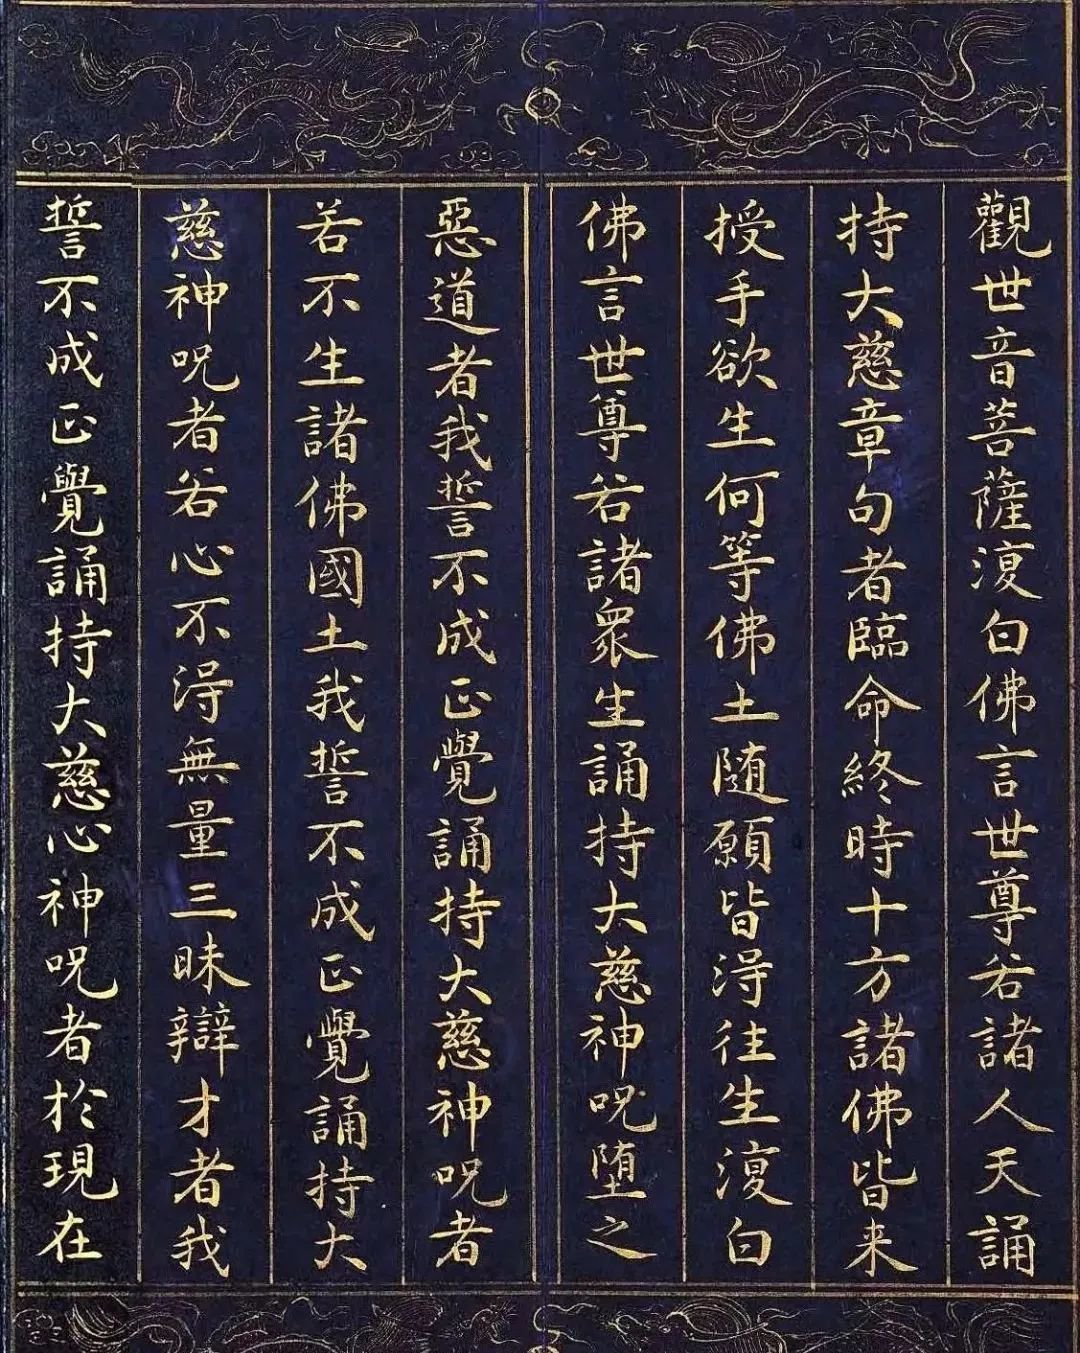 觀世音菩薩復白佛言世尊若諸人天誦
持大慈章句者臨命終時十方諸佛皆来
授手欲生何等佛土随願皆得往生復白
佛言世尊若諸衆生誦持大慈神呪堕之
惡道者我誓不成正覺誦持大慈神呪者
若不生諸佛國土我誓不成正覺誦持大
慈神呪者若心不得無量三昧辯才者我
誓不成正覺誦持大慈心神呪者於現在